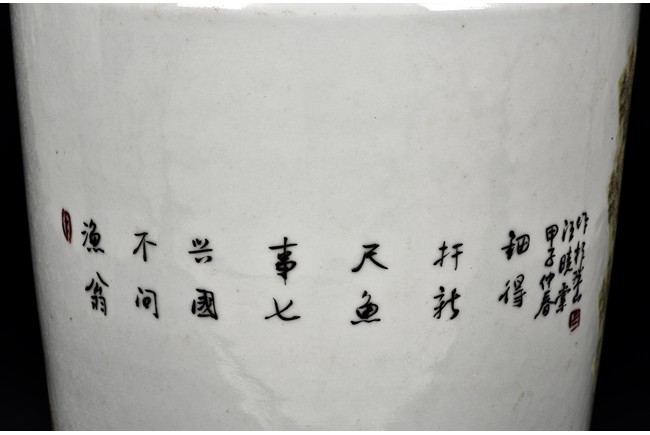 漁翁
不问
兴國
事七
尺魚
扞新
鈿得
甲子仲春
汪曉棠
作於珠山